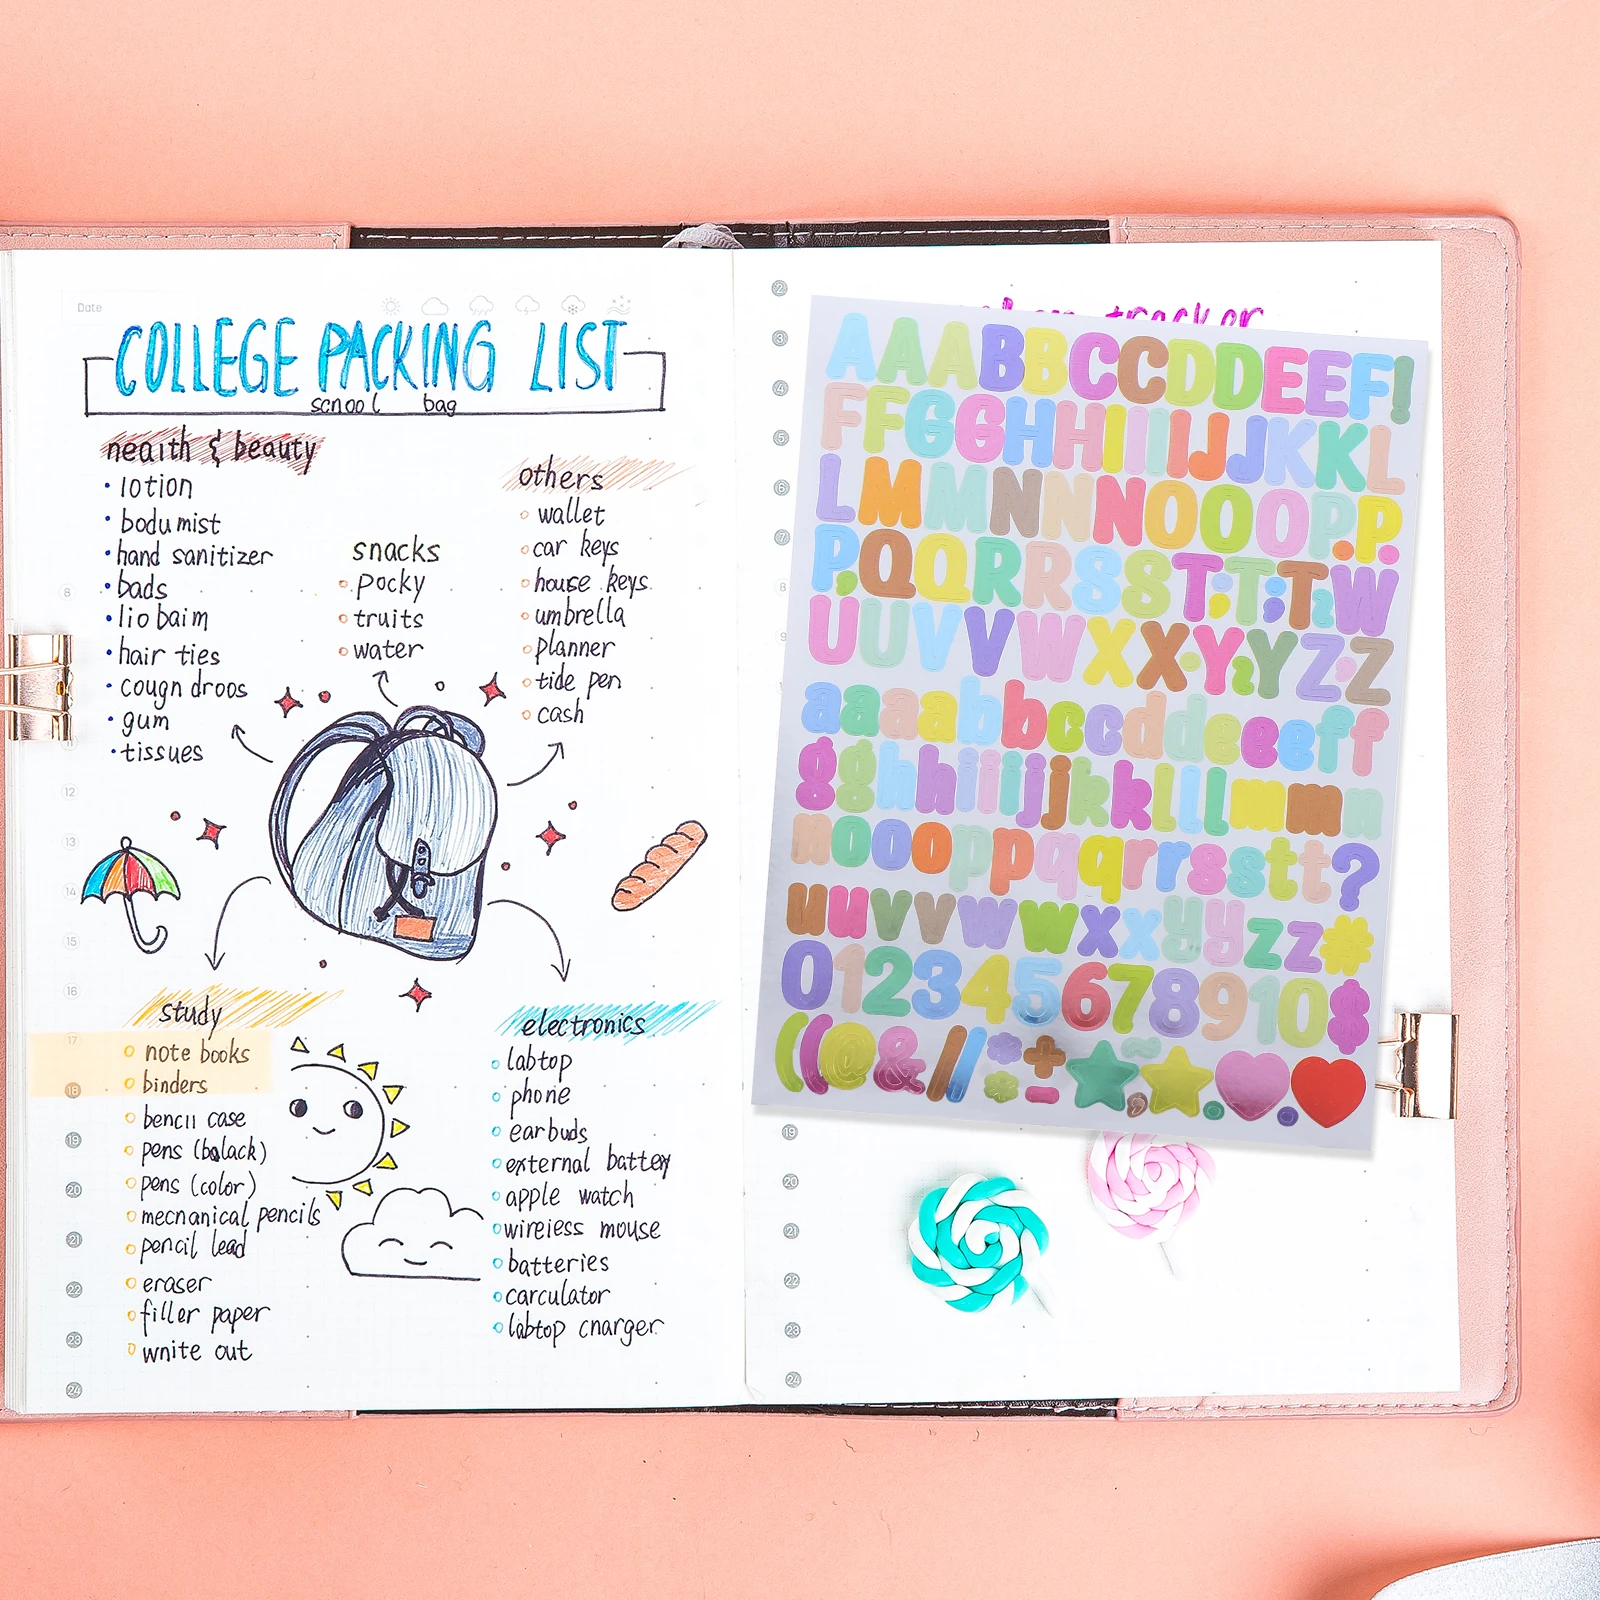 Date
COLLEGE PACKING LIST
scnool bag
neaith & beauty
lotion
bodumist
hand sanitizer
bads
lio baim
hair ties
cougn droos
gum
tissues
snacks
pocky
truits
water
others
wallet
car keys
house keys
umbrella
planner
tide pen
cash
study
note books
binders
bencil case
pens (balack)
pens (color)
mecnanical pencils
pencil lead
eraser
filler paper
wnite out
electronics
labtop
phone
earbuds
external battey
apple watch
wireiess mouse
batteries
carculator
labtop cnarger
8
12
13
14
15
16
17
18
19
20
21
22
23
24
tracker
2
3
4
5
6
7
8
9
AAABBCCDDEEF!
FFGGHHIIIIJJKKL
LMMNNNOOOP.P.
P,QQRRSST;T;TW
UUVVWXXYYZZ
aaaabbccddeeeff
gghhiiijjkklllmmn
noooppqqrrsstt?
uuvvwwxxyyzz#
012345678910$
((@&//*+
19
20
21
22
23
24